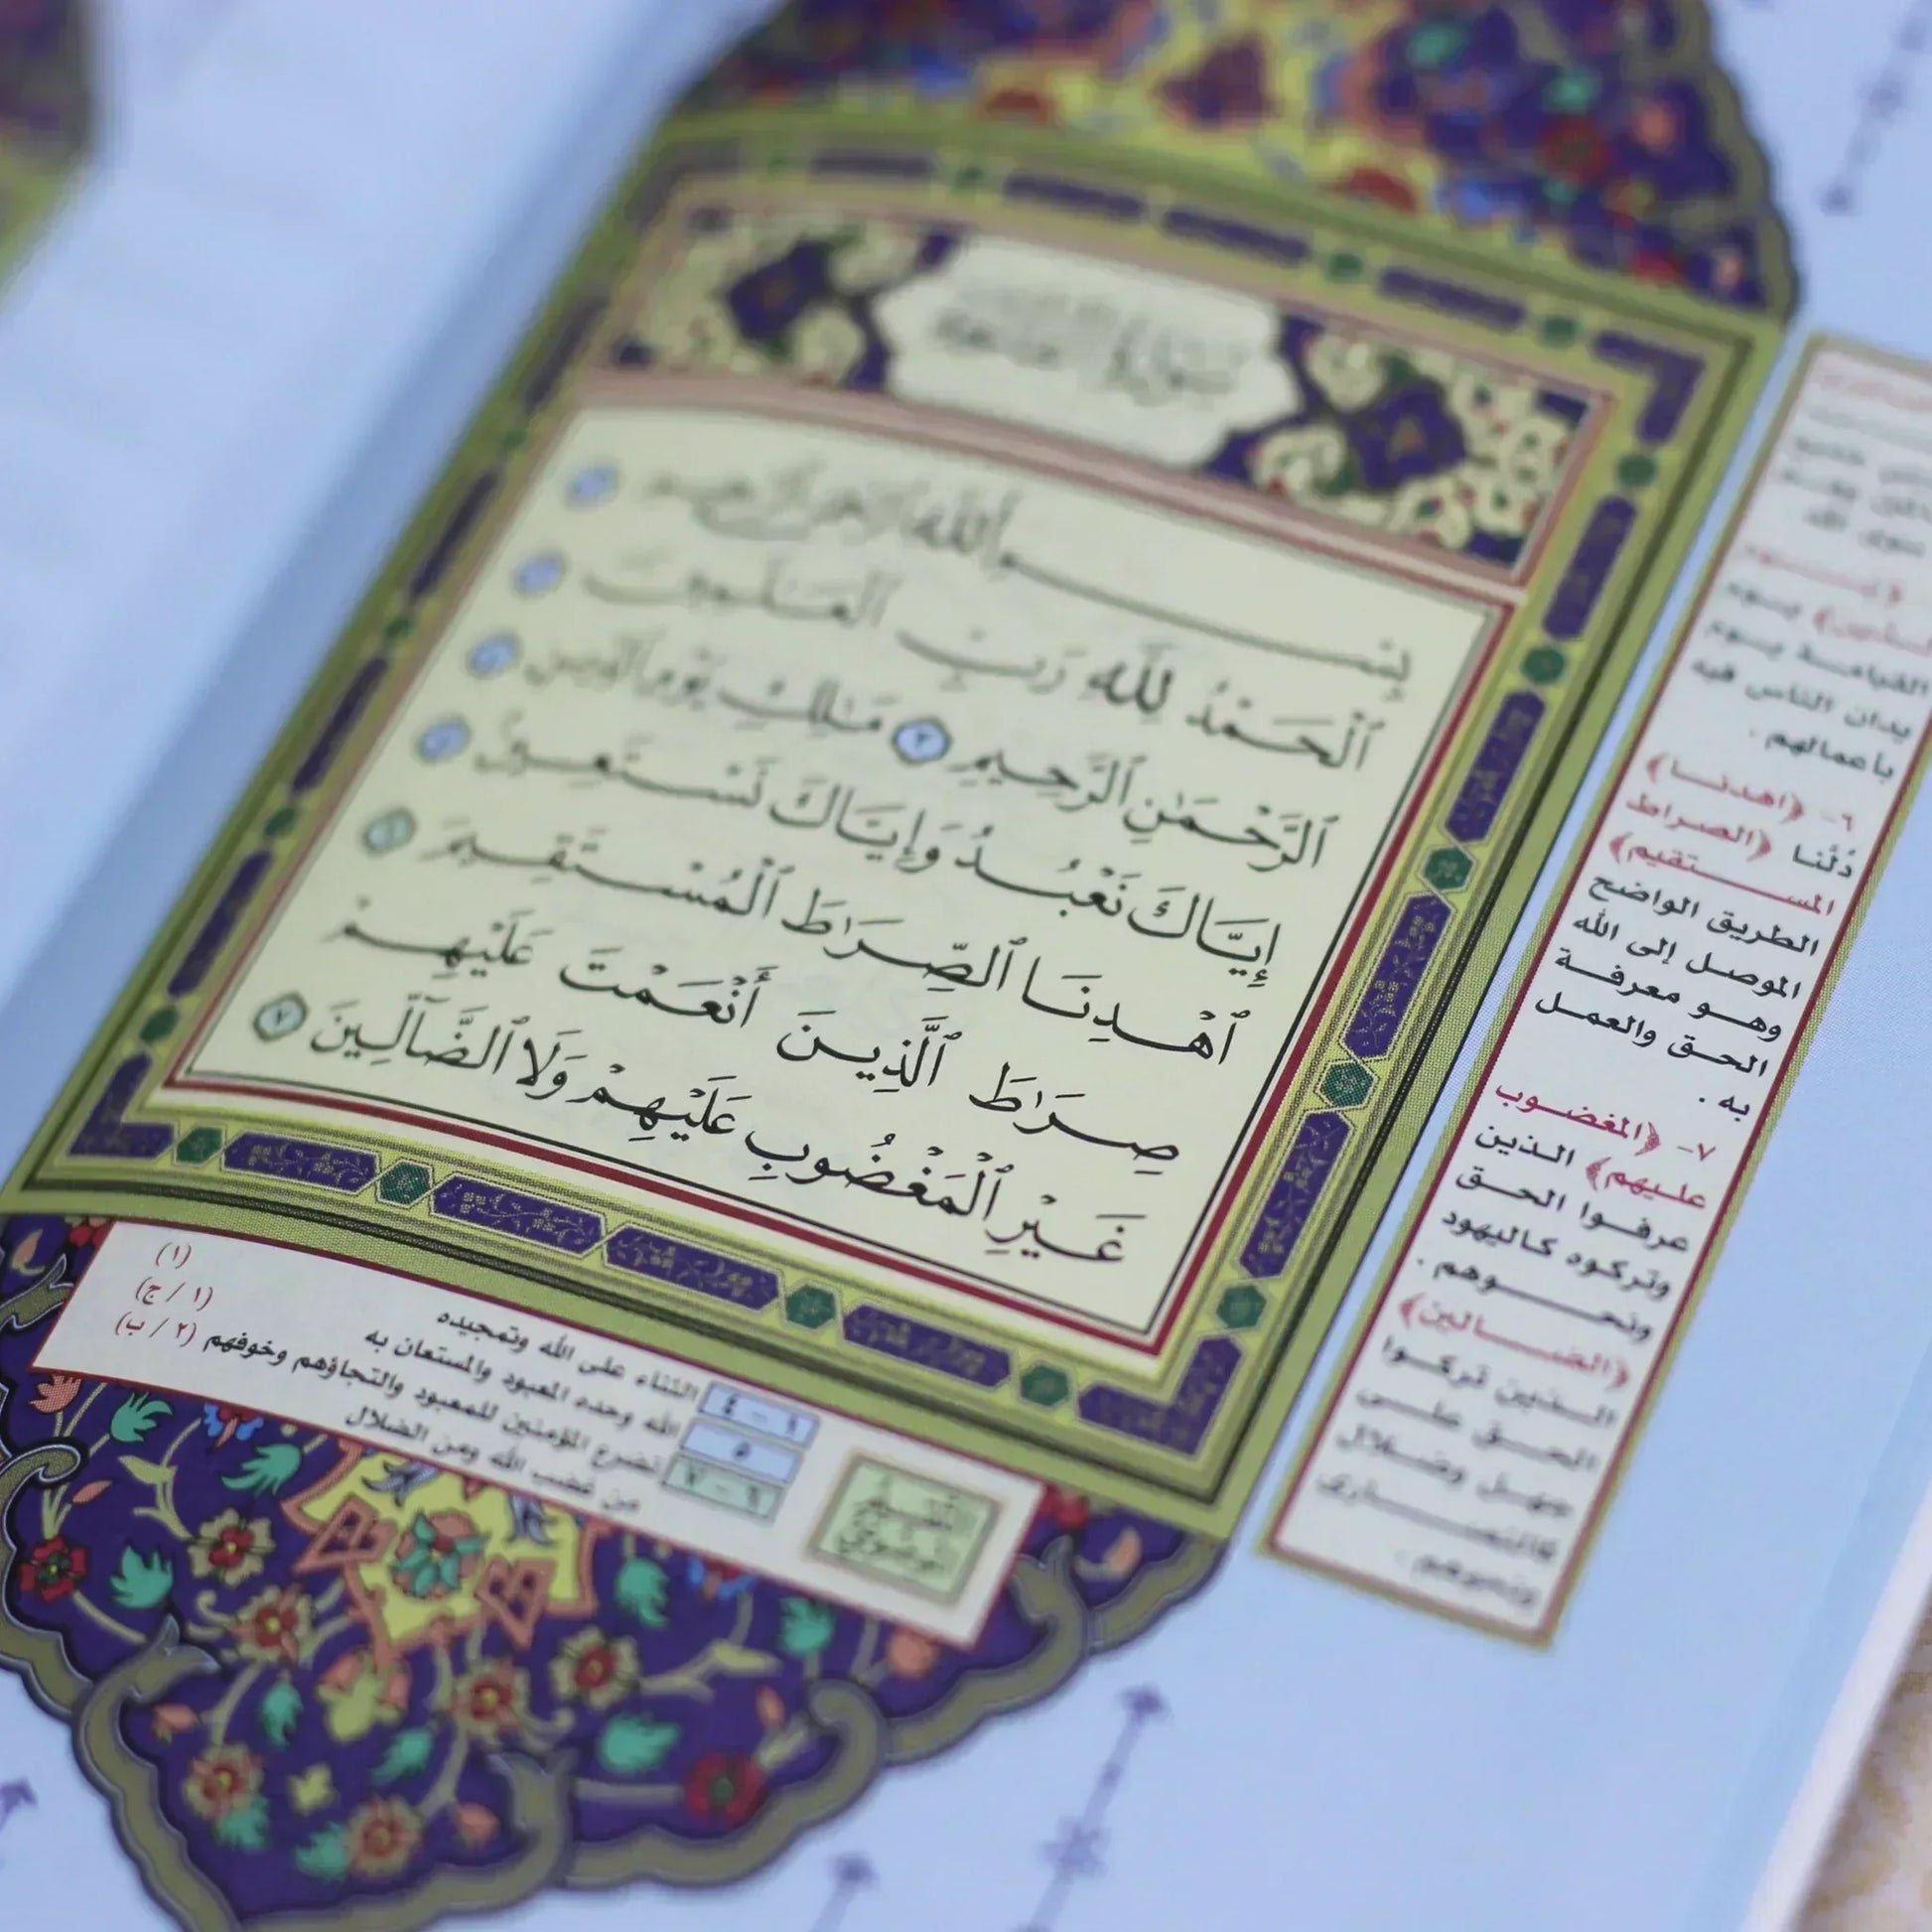 سورة الفاتحة
بِسْمِ ٱللَّهِ ٱلرَّحْمَٰنِ ٱلرَّحِيمِ ١
ٱلْحَمْدُ لِلَّهِ رَبِّ ٱلْعَٰلَمِينَ ٢
ٱلرَّحْمَٰنِ ٱلرَّحِيمِ ٣ مَٰلِكِ يَوْمِ ٱلدِّينِ ٤
إِيَّاكَ نَعْبُدُ وَإِيَّاكَ نَسْتَعِينُ ٥
ٱهْدِنَا ٱلصِّرَٰطَ ٱلْمُسْتَقِيمَ ٦
صِرَٰطَ ٱلَّذِينَ أَنْعَمْتَ عَلَيْهِمْ
غَيْرِ ٱلْمَغْضُوبِ عَلَيْهِمْ وَلَا ٱلضَّآلِّينَ ٧
سوى الله
﴿يوم
الدين﴾ يوم
القيامة يوم
يدان الناس فيه
بأعمالهم .
٦- ﴿اهدنا﴾
دُلَّنا ﴿الصراط
المستقيم﴾
الطريق الواضح
الموصل إلى الله
وهو معرفة
الحق والعمل
به .
٧- ﴿المغضوب
عليهم﴾ الذين
عرفوا الحق
وتركوه كاليهود
ونحوهم .
﴿الضالين﴾
الذين تركوا
الحق على
جهل وضلال
كالنصارى
وغيرهم .
التقسيم
الموضوعي
١ – ٤ الثناء على الله وتمجيده (١)
٥ الله وحده المعبود والمستعان به (١ / ج)
٦ – ٧ تضرع المؤمنين للمعبود والتجاؤهم وخوفهم (٢ / ب)
من غضب الله ومن الضلال